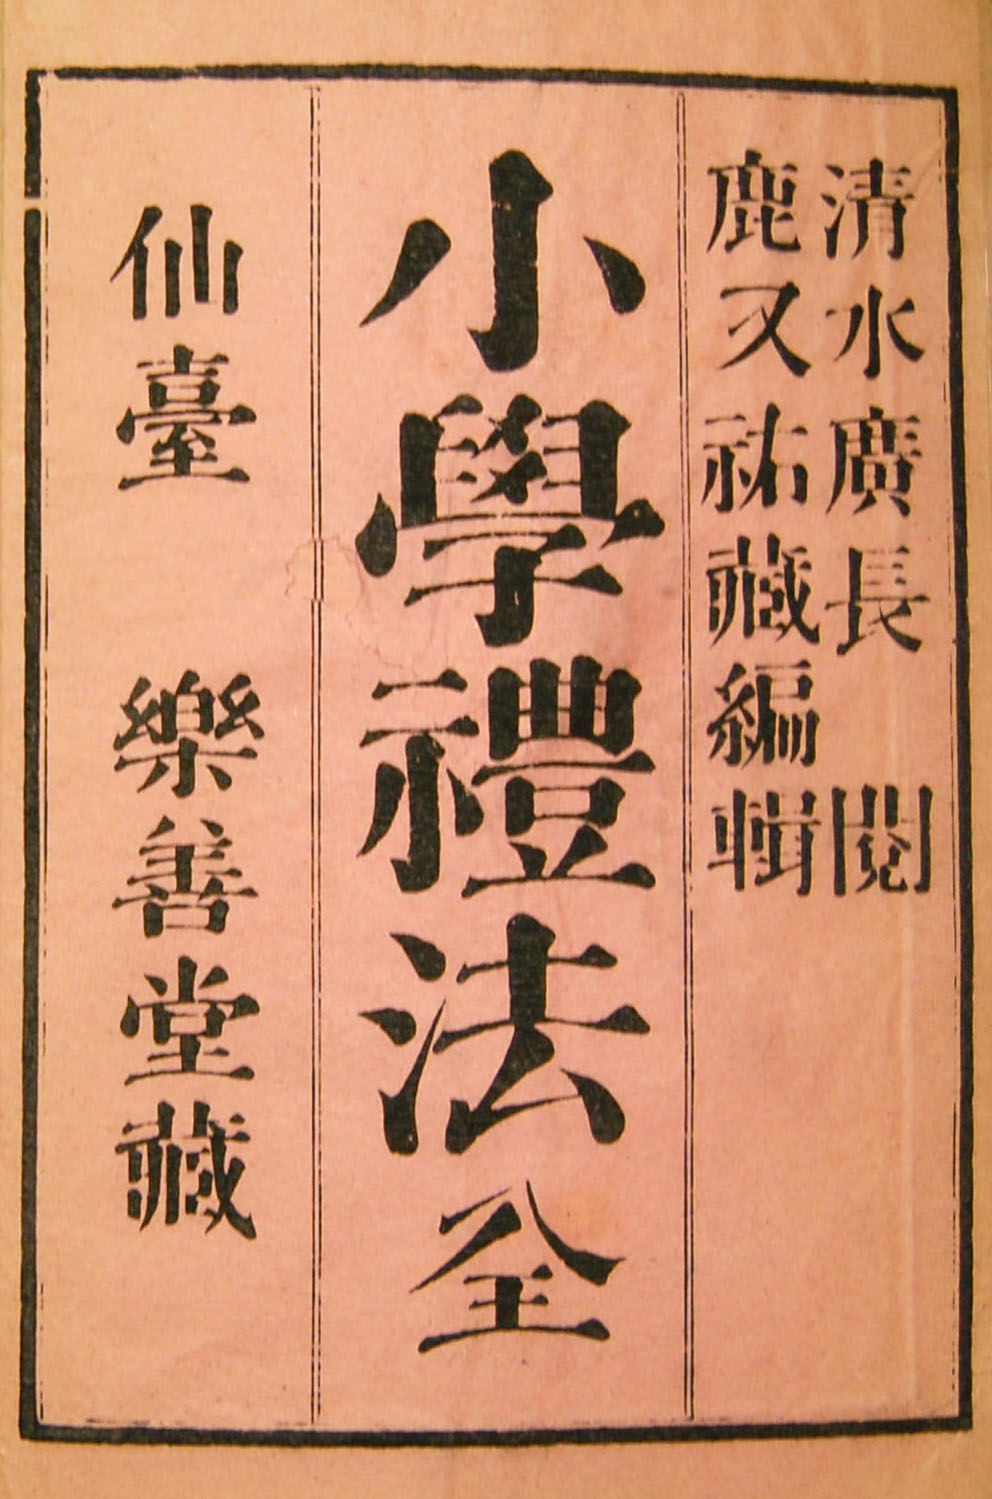 清水廣長 閲
鹿又祐藏編輯
小學禮法 全
仙臺 樂善堂藏